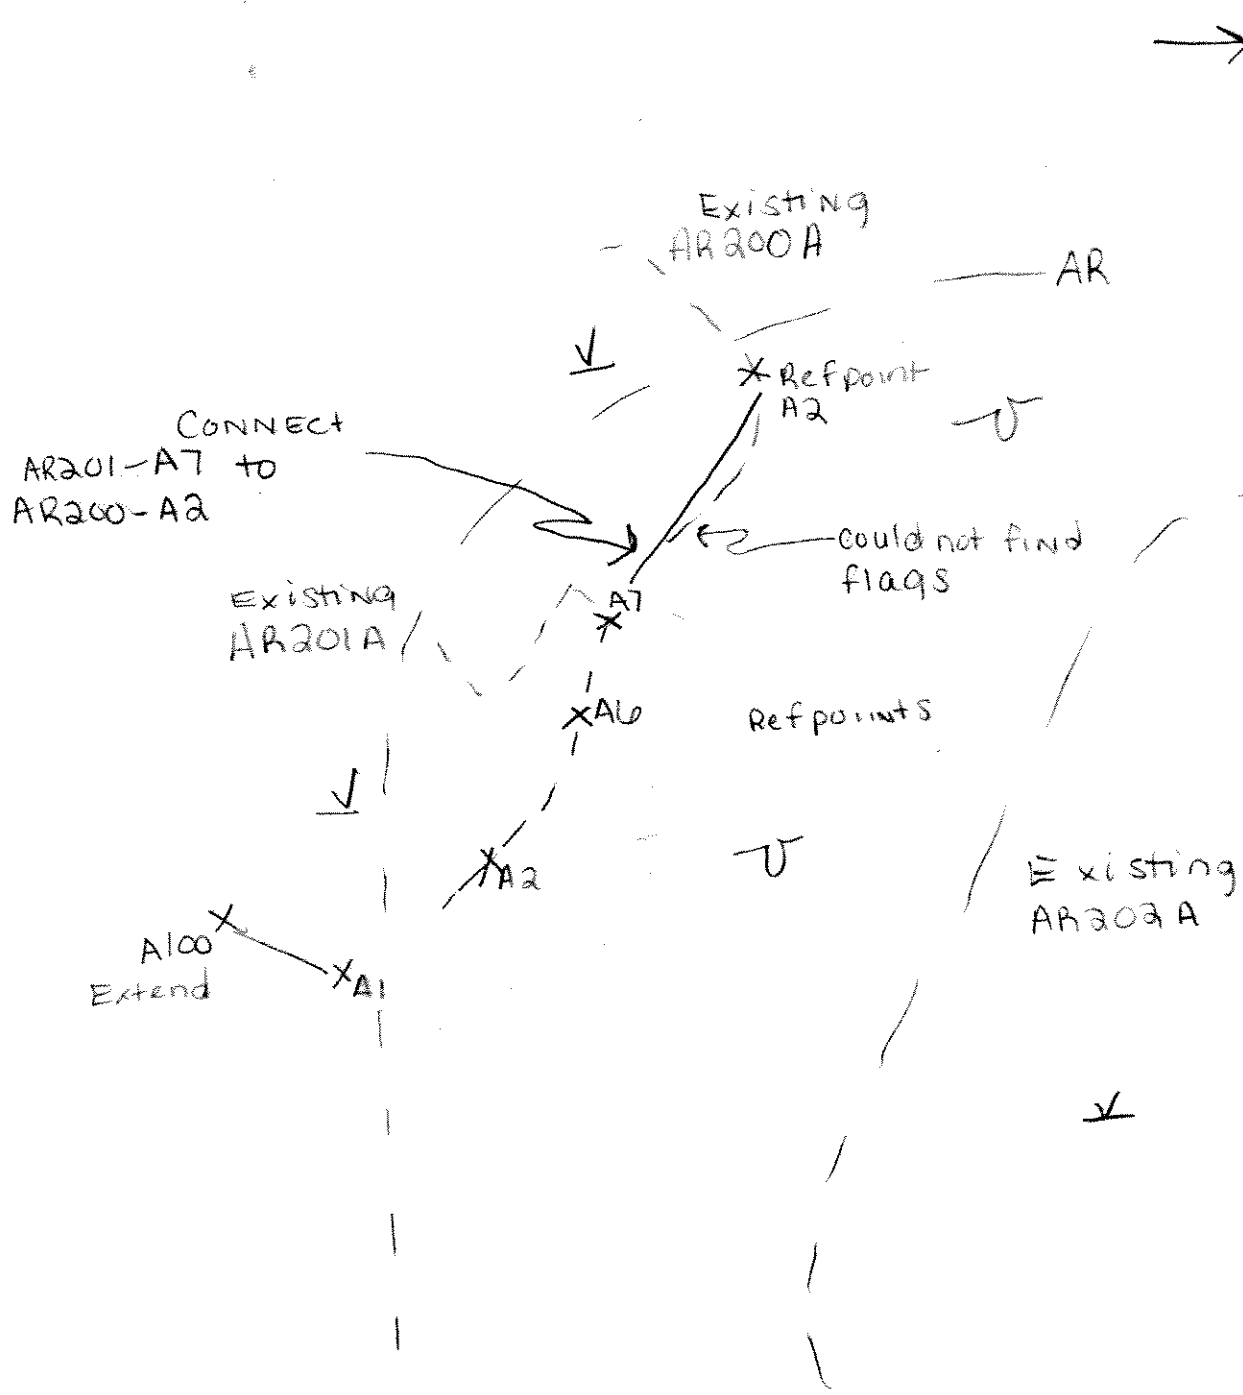 Existing
AR200A
AR
Refpoint
A2
CONNECt
AR201-A7 to
AR200-A2
Could not find
flags
Existing
AR201A
A7
A6
Refpoints
A2
U
U
Existing
AR202A
A100
Extend
A1